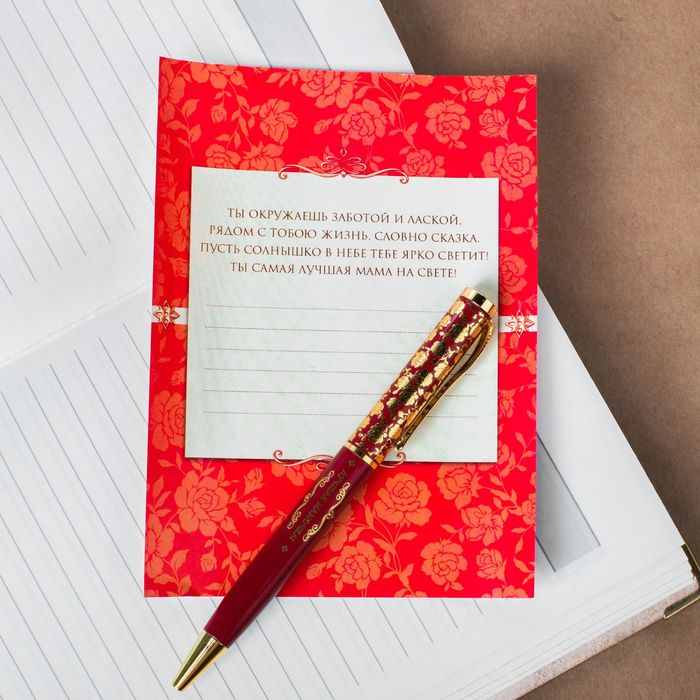 ТЫ ОКРУЖАЕШЬ ЗАБОТОЙ И ЛАСКОЙ,
РЯДОМ С ТОБОЮ ЖИЗНЬ, СЛОВНО СКАЗКА.
ПУСТЬ СОЛНЫШКО В НЕБЕ ТЕБЕ ЯРКО СВЕТИТ!
ТЫ САМАЯ ЛУЧШАЯ МАМА НА СВЕТЕ!
ЛУЧШАЯ МАМОЧКА!